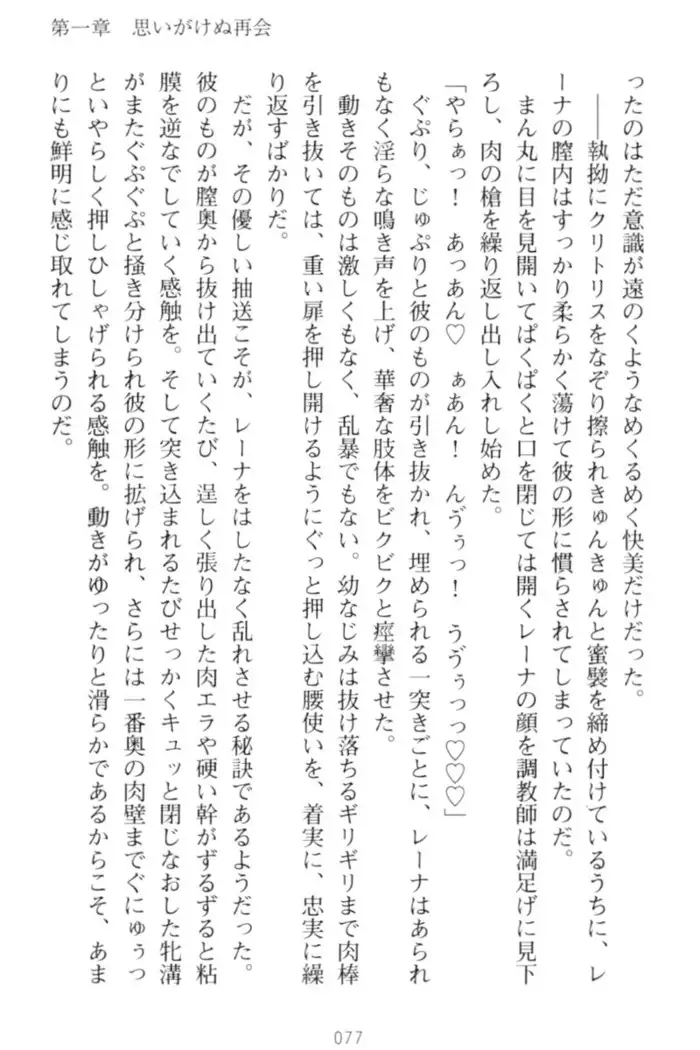 第一章　思いがけぬ再会
ったのはただ意識が遠のくようなめくるめく快美だけだった。
――執拗にクリトリスをなぞり擦られきゅんきゅんと蜜襞を締め付けているうちに、レ
ーナの膣内はすっかり柔らかく蕩けて彼の形に慣らされてしまっていたのだ。
まん丸に目を見開いてぱくぱくと口を閉じては開くレーナの顔を調教師は満足げに見下
ろし、肉の槍を繰り返し出し入れし始めた。
「やらぁっ！　あっあん♡　ぁあん！　んゔぅっ！　うゔぅっっ♡♡♡」
ぐぷり、じゅぷりと彼のものが引き抜かれ、埋められる一突きごとに、レーナはあられ
もなく淫らな鳴き声を上げ、華奢な肢体をビクビクと痙攣させた。
動きそのものは激しくもなく、乱暴でもない。幼なじみは抜け落ちるギリギリまで肉棒
を引き抜いては、重い扉を押し開けるようにぐっと押し込む腰使いを、着実に、忠実に繰
り返すばかりだ。
だが、その優しい抽送こそが、レーナをはしたなく乱れさせる秘訣であるようだった。
彼のものが膣奥から抜け出ていくたび、逞しく張り出した肉エラや硬い幹がずるずると粘
膜を逆なでしていく感触を。そして突き込まれるたびせっかくキュッと閉じなおした牝溝
がまたぐぷぐぷと掻き分けられ彼の形に拡げられ、さらには一番奥の肉壁までぐにゅぅっ
といやらしく押しひしゃげられる感触を。動きがゆったりと滑らかであるからこそ、あま
りにも鮮明に感じ取れてしまうのだ。
077